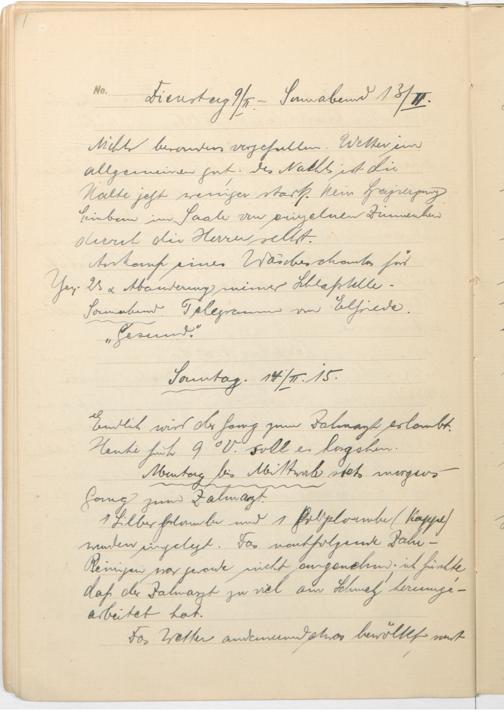 No.
Dienstag 9/II. – Sonnabend 13/II.
Nichts besonders vorgefallen. Wetter im
allgemeinen gut: des Nachts ist die
Kälte jetzt weniger stark. Kein
im Saale von einzelnen Zimmern
durch die Herren selbst.
Ankauf eines Wäscheschranks für
Yen 23 & Abänderung meiner Schlafstelle.
Sonnabend Telegramm von Elfriede.
„Gesund."
Sonntag. 14/II. 15.
Endlich wird der Gang zum Zahnarzt erlaubt.
Heute früh 9 Uhr soll es losgehen.
Montag bis Mittwoch stets morgens
Gang zum Zahnarzt.
1 Silberplombe und 1 Goldplombe (Kappe)
wurden eingelegt. Das nachfolgende Zahn-
Reinigen war gerade nicht angenehm. ich fürchte
daß der Zahnarzt zu viel am Schmelz herumge-
arbeitet hat.
Das Wetter andauernd etwas bewölkt